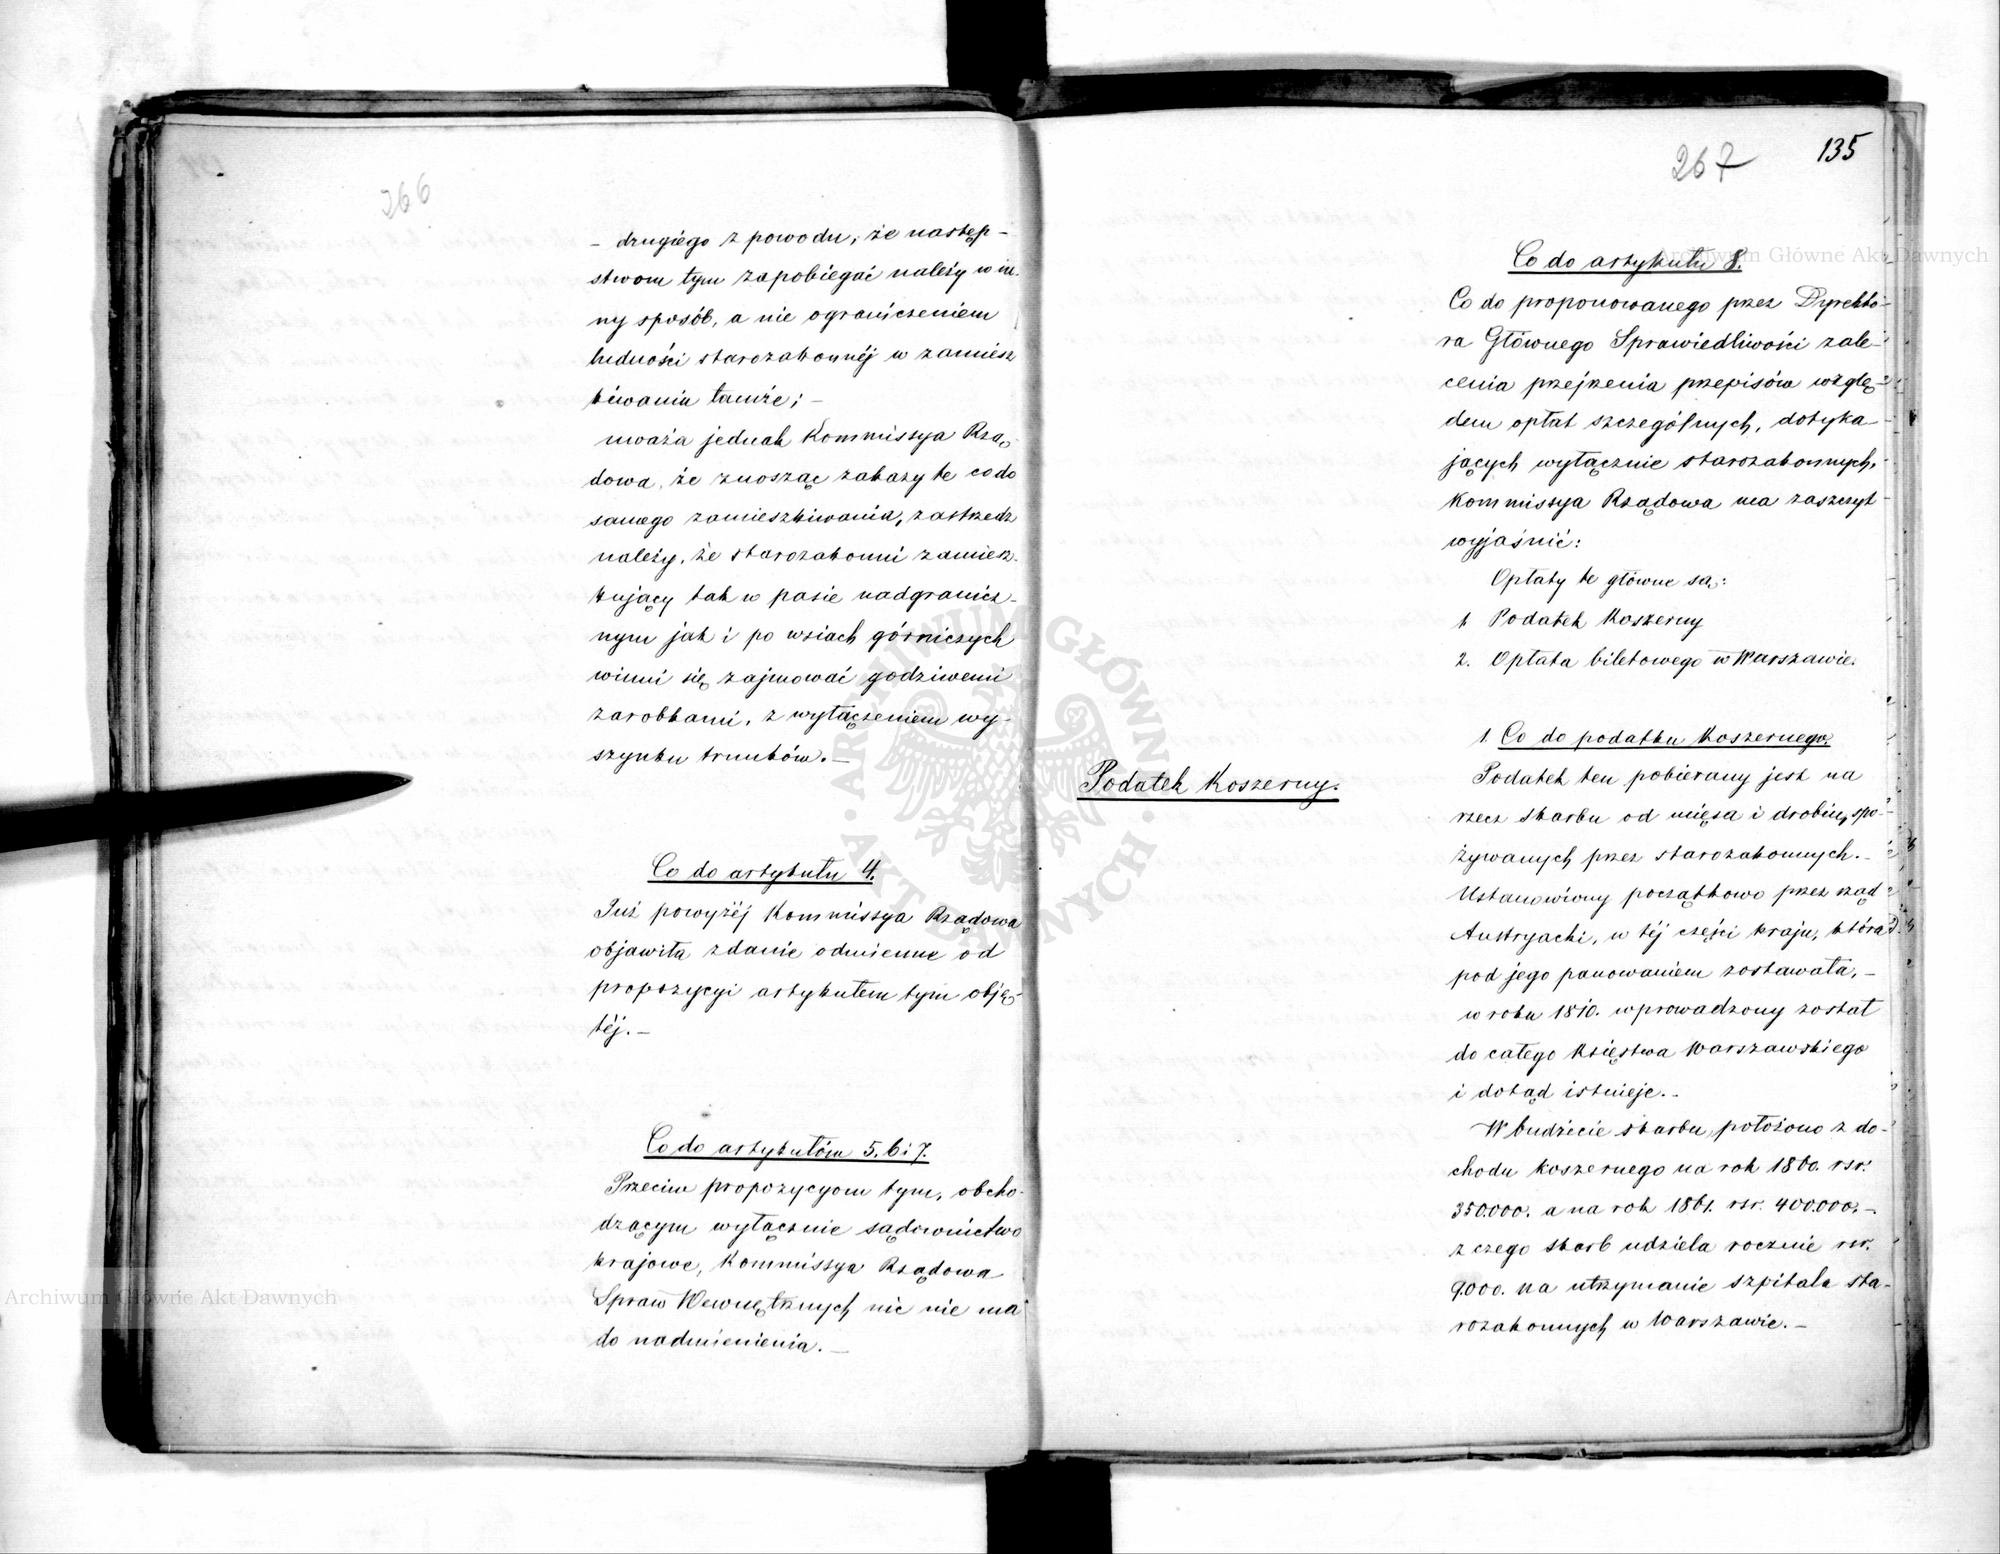 266
– drugiego z powodu, że następ–
stwom tym zapobiegać należy w in-
ny sposób, a nie ograniczeniem
ludności starozakonnéj w zamiesz
kiwaniu tamże; –
uważa jednak Kommissya Rzą-
dowa, że znosząc zakazy te co do
samego zamieszkiwania, zastrzedz
należy, że starozakonni zamiesz-
kujący tak w pasie nadgranicz-
nym jak i po wsiach górniczych
winni się zajmować godziwemi
zarobkami, z wyłączeniem wy-
szynku trunków. –
Co do artykułu 4.
Już powyżéj Kommissya Rządowa
objawiła zdanie odmienne od
propozycyi artykułem tym obję-
téj. –
Co do artykułów 5. 6 i 7.
Przeciw propozycyom tym, obcho-
dzącym wyłącznie sądownictwo
krajowe, Kommissya Rządowa
Spraw Wewnętrznych nic nie ma
do nadmienienia. –
267
135
Co do artykułu 8.
Co do proponowanego przez Dyrekto-
ra Głównego Sprawiedliwości zale-
cenia przejrzenia przepisów wzglę-
dem opłat szczególnych, dotyka-
jących wyłącznie starozakonnych,
Kommissya Rządowa ma zaszczyt
wyjaśnić:
Opłaty te główne są:
1. Podatek Koszerny
2. Opłata biletowego w Warszawie.
1. Co do podatku Koszernego.
Podatek Koszerny.
Podatek ten pobierany jest na
rzecz skarbu od mięsa i drobiu, spo-
żywanych przez starozakonnych. –
Ustanowiony początkowo przez rząd
Austryacki, w téj części kraju, która
pod jego panowaniem zostawała, –
w roku 1810. wprowadzony został
do całego Księstwa Warszawskiego
i dotąd istnieje. –
W budżecie skarbu, położono z do-
chodu koszernego na rok 1860. rsr.
350.000. a na rok 1861. rsr. 400.000. –
z czego skarb udziela rocznie rsr.
9.000. na utrzymanie szpitala sta-
rozakonnych w Warszawie. –
Archiwum Główne Akt Dawnych
Archiwum Główne Akt Dawnych
ARCHIWUM GŁÓWNE AKT DAWNYCH